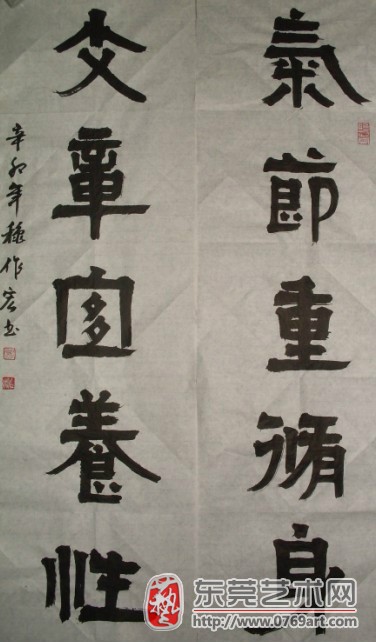 氣節重脩身
文章宜養性
辛卯年穆作宏书
东莞艺术网
www.0769art.com